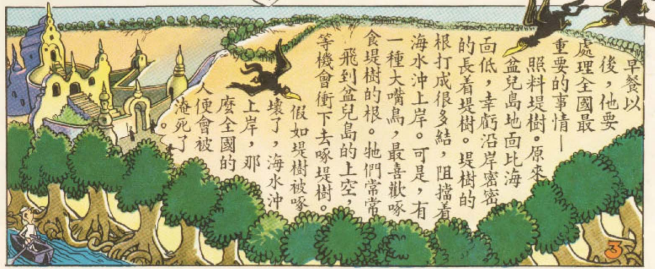 早餐以
後，他要
處理全國最
重要的事情—
照料堤樹。原來
盆兒島地面比海
面低，幸虧沿岸密密
的長着堤樹。堤樹的
根打成很多結，阻擋着
海水沖上岸。可是，有
一種大嘴鳥，最喜歡啄
食堤樹的根。牠們常常
飛到盆兒島的上空，
等機會衝下去啄堤樹。
假如堤樹被啄
壞了，海水沖
上岸，那
麼全國的
人便會被
淹死了。
3